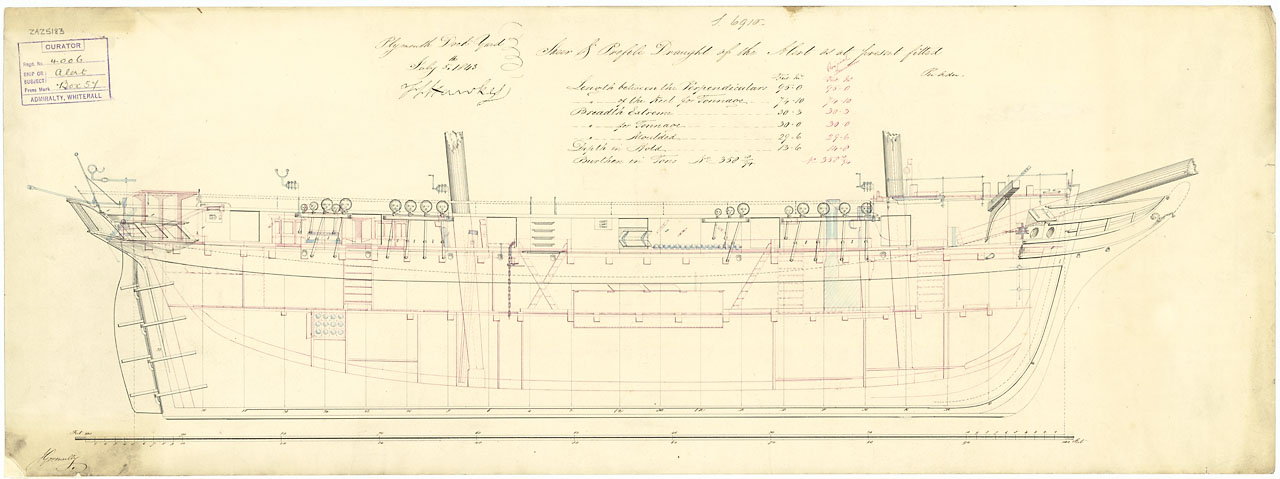 ZAZ5183
CURATOR
Regn. No. 4006
SHIP OR SUBJECT: Alert
Press Mark Box 54
ADMIRALTY, WHITEHALL
Plymouth Dock Yard
July 5th 1843
Sheer & Profile Draught of the Alert as at present fitted
Length between the Perpendiculars 95 . 0 95 . 0
of the Keel for Tonnage
Breadth Extreme 30 . 3 30 . 3
for Tonnage 30 . 0 30 . 0
Moulded 29 . 6 29 . 6
Depth in Hold 13 . 6 14 . 0
Burthen in Tons No. 358